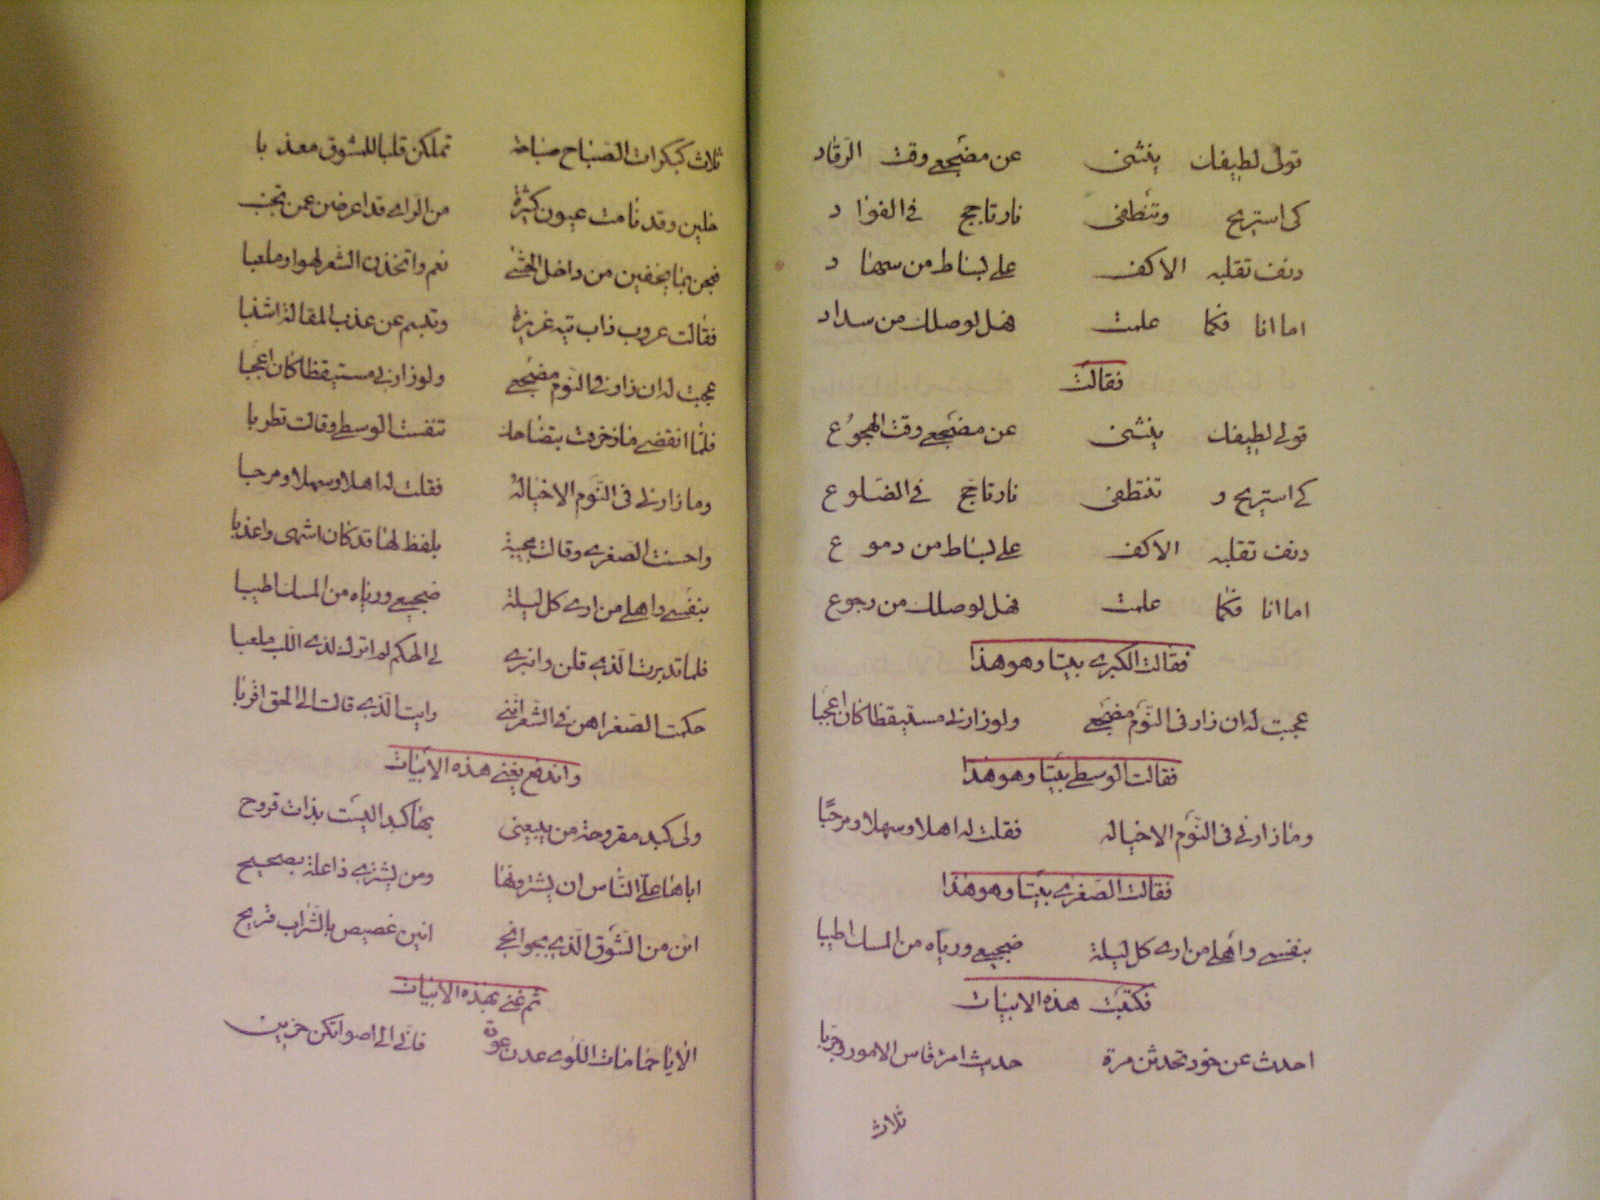 قولى لطيفك ينثنى عن مضجعى وقت الرقاد
كى استريح وتنطفى نار تاجج فى الفؤاد
دنف تقلبه الاكف على بساط من سهاد
اما انا فكما علمت فهل لوصلك من سداد
فقالت
قولى لطيفك ينثنى عن مضجعى وقت الهجوع
كى استريح و تنتطفى نار تاجج فى الضلوع
دنف تقلبه الاكف على بساط من دموع
اما انا فكما علمت فهل لوصلك من رجوع
فقالت الكبرى بيتا وهو هذا
عجبت له ان زار فى النوم مضجعى ولو زارنى مستيقظا كان اعجبا
فقالت الوسطى بيتا وهو هذا
وما زارنى فى النوم الا خياله فقلت له اهلا وسهلا ومرحبا
فقالت الصغرى بيتا وهو هذا
بنفسى واهلى من ارى كل ليلة ضجيعى ورياه من المسك اطيبا
فكتبت هذه الابيات
احدث عن خود تحدثن مرة حديث امرء قاس الامور وجربا
ثلاث
ثلاث كبكرات الصباح صباحة تملكن قلبا للمشوق معذبا
خلين وقد نامت عيون كثيرة من الراى قد اعرضن عمن تجنب
فبحن بما يخفين من داخل الحشى نعم واتخذن الشعر لهوا وملعبا
فقالت عروب ذات تيه غريزة وتبسم عن عذب المقالة اشنبا
عجبت له ان زار فى النوم مضجعى ولو زارنى مستيقظا كان اعجبا
فلما انقضى ما زخرفت بتضاحك تنفست الوسطى وقالت تطربا
وما زارنى فى النوم الا خياله فقلت له اهلا وسهلا ومرحبا
واحسنت الصغرى وقالت مجيبة بلفظ لها قد كان اشهى واعذبا
بنفسى واهلى من ارى كل ليلة ضجيعى ورياه من المسك اطيبا
فلما تدبرت الذى قلن وانبرى لى الحكم لم اترك لذى اللب ملعبا
حكمت الصغراهن فى الشعر اننى رايت الذى قالت الى الحق اقربا
واندفع يغنى هذه الابيات
ولى كبد مقروحة من يبيعنى بها كبدا ليست بذات قروح
اباها على الناس ان يشترونها ومن يشترى ذا علة بصحيح
ائن من الشوق الذى بجوانحى انين غصيص بالشراب قريح
ثم غنى بهذه الابيات
الا يا حمامات اللوى عدن عودة فانى الى اصواتكن حزين